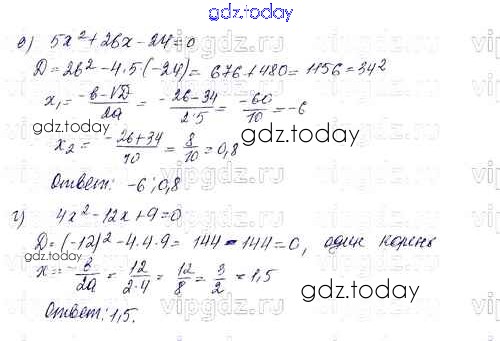 gdz.today
в) 5x² + 26x - 24 = 0
D = 26² - 4·5·(-24) = 676 + 480 = 1156 = 34²
x₁ = (-в - √D)/2a = (-26 - 34)/(2·5) = -60/10 = -6
gdz.today
x₂ = (-26 + 34)/10 = 8/10 = 0,8
gdz.today
Ответ: -6; 0,8
г) 4x² - 12x + 9 = 0
D = (-12)² - 4·4·9 = 144 - 144 = 0, один корень
x = -в/2a = 12/(2·4) = 12/8 = 3/2 = 1,5
gdz.today
Ответ: 1,5.